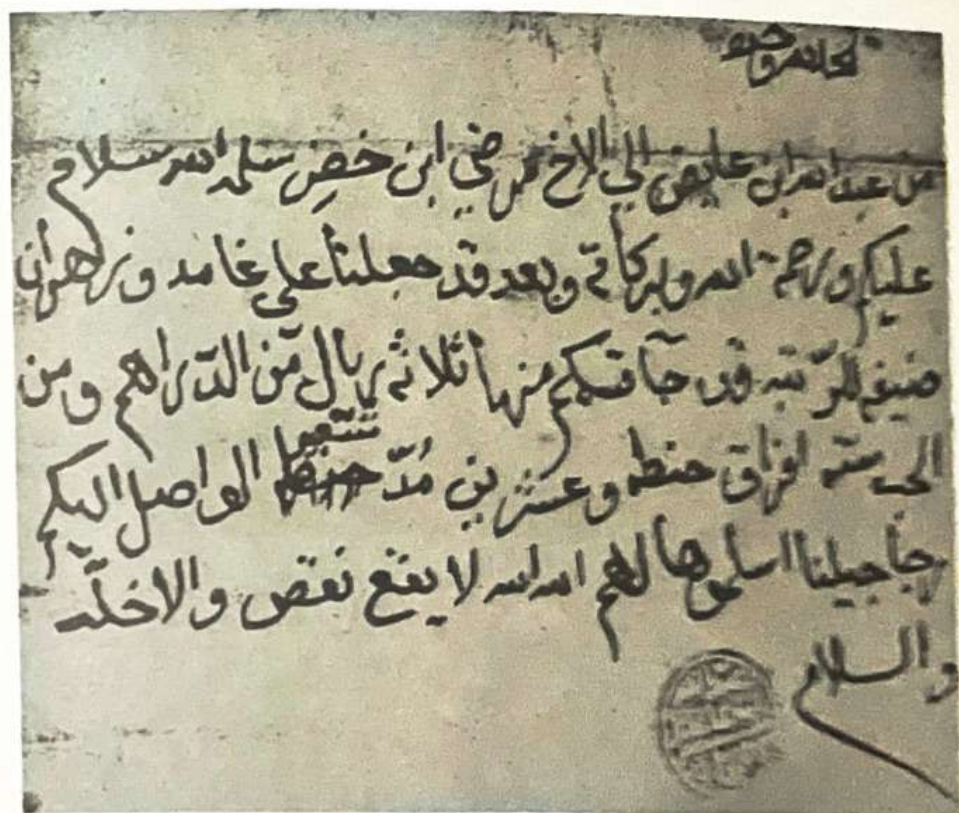 الحمد لله وحده
من عبد الله ابن عايض الي الاخ مرضي ابن خضر سلمه الله سلام
عليكم ورحمة الله وبركاته وبعد قد جعلنا على غامد وزهران
ضيفه للرتبه قد جاتكم منها ثلاثه ريال من الدراهم ومن
الحب سته افراق حنطه وعشرين مد شعير الواصل اليكم
سلموها لهم الله الله لا يقع نقص والا خله
والسلام